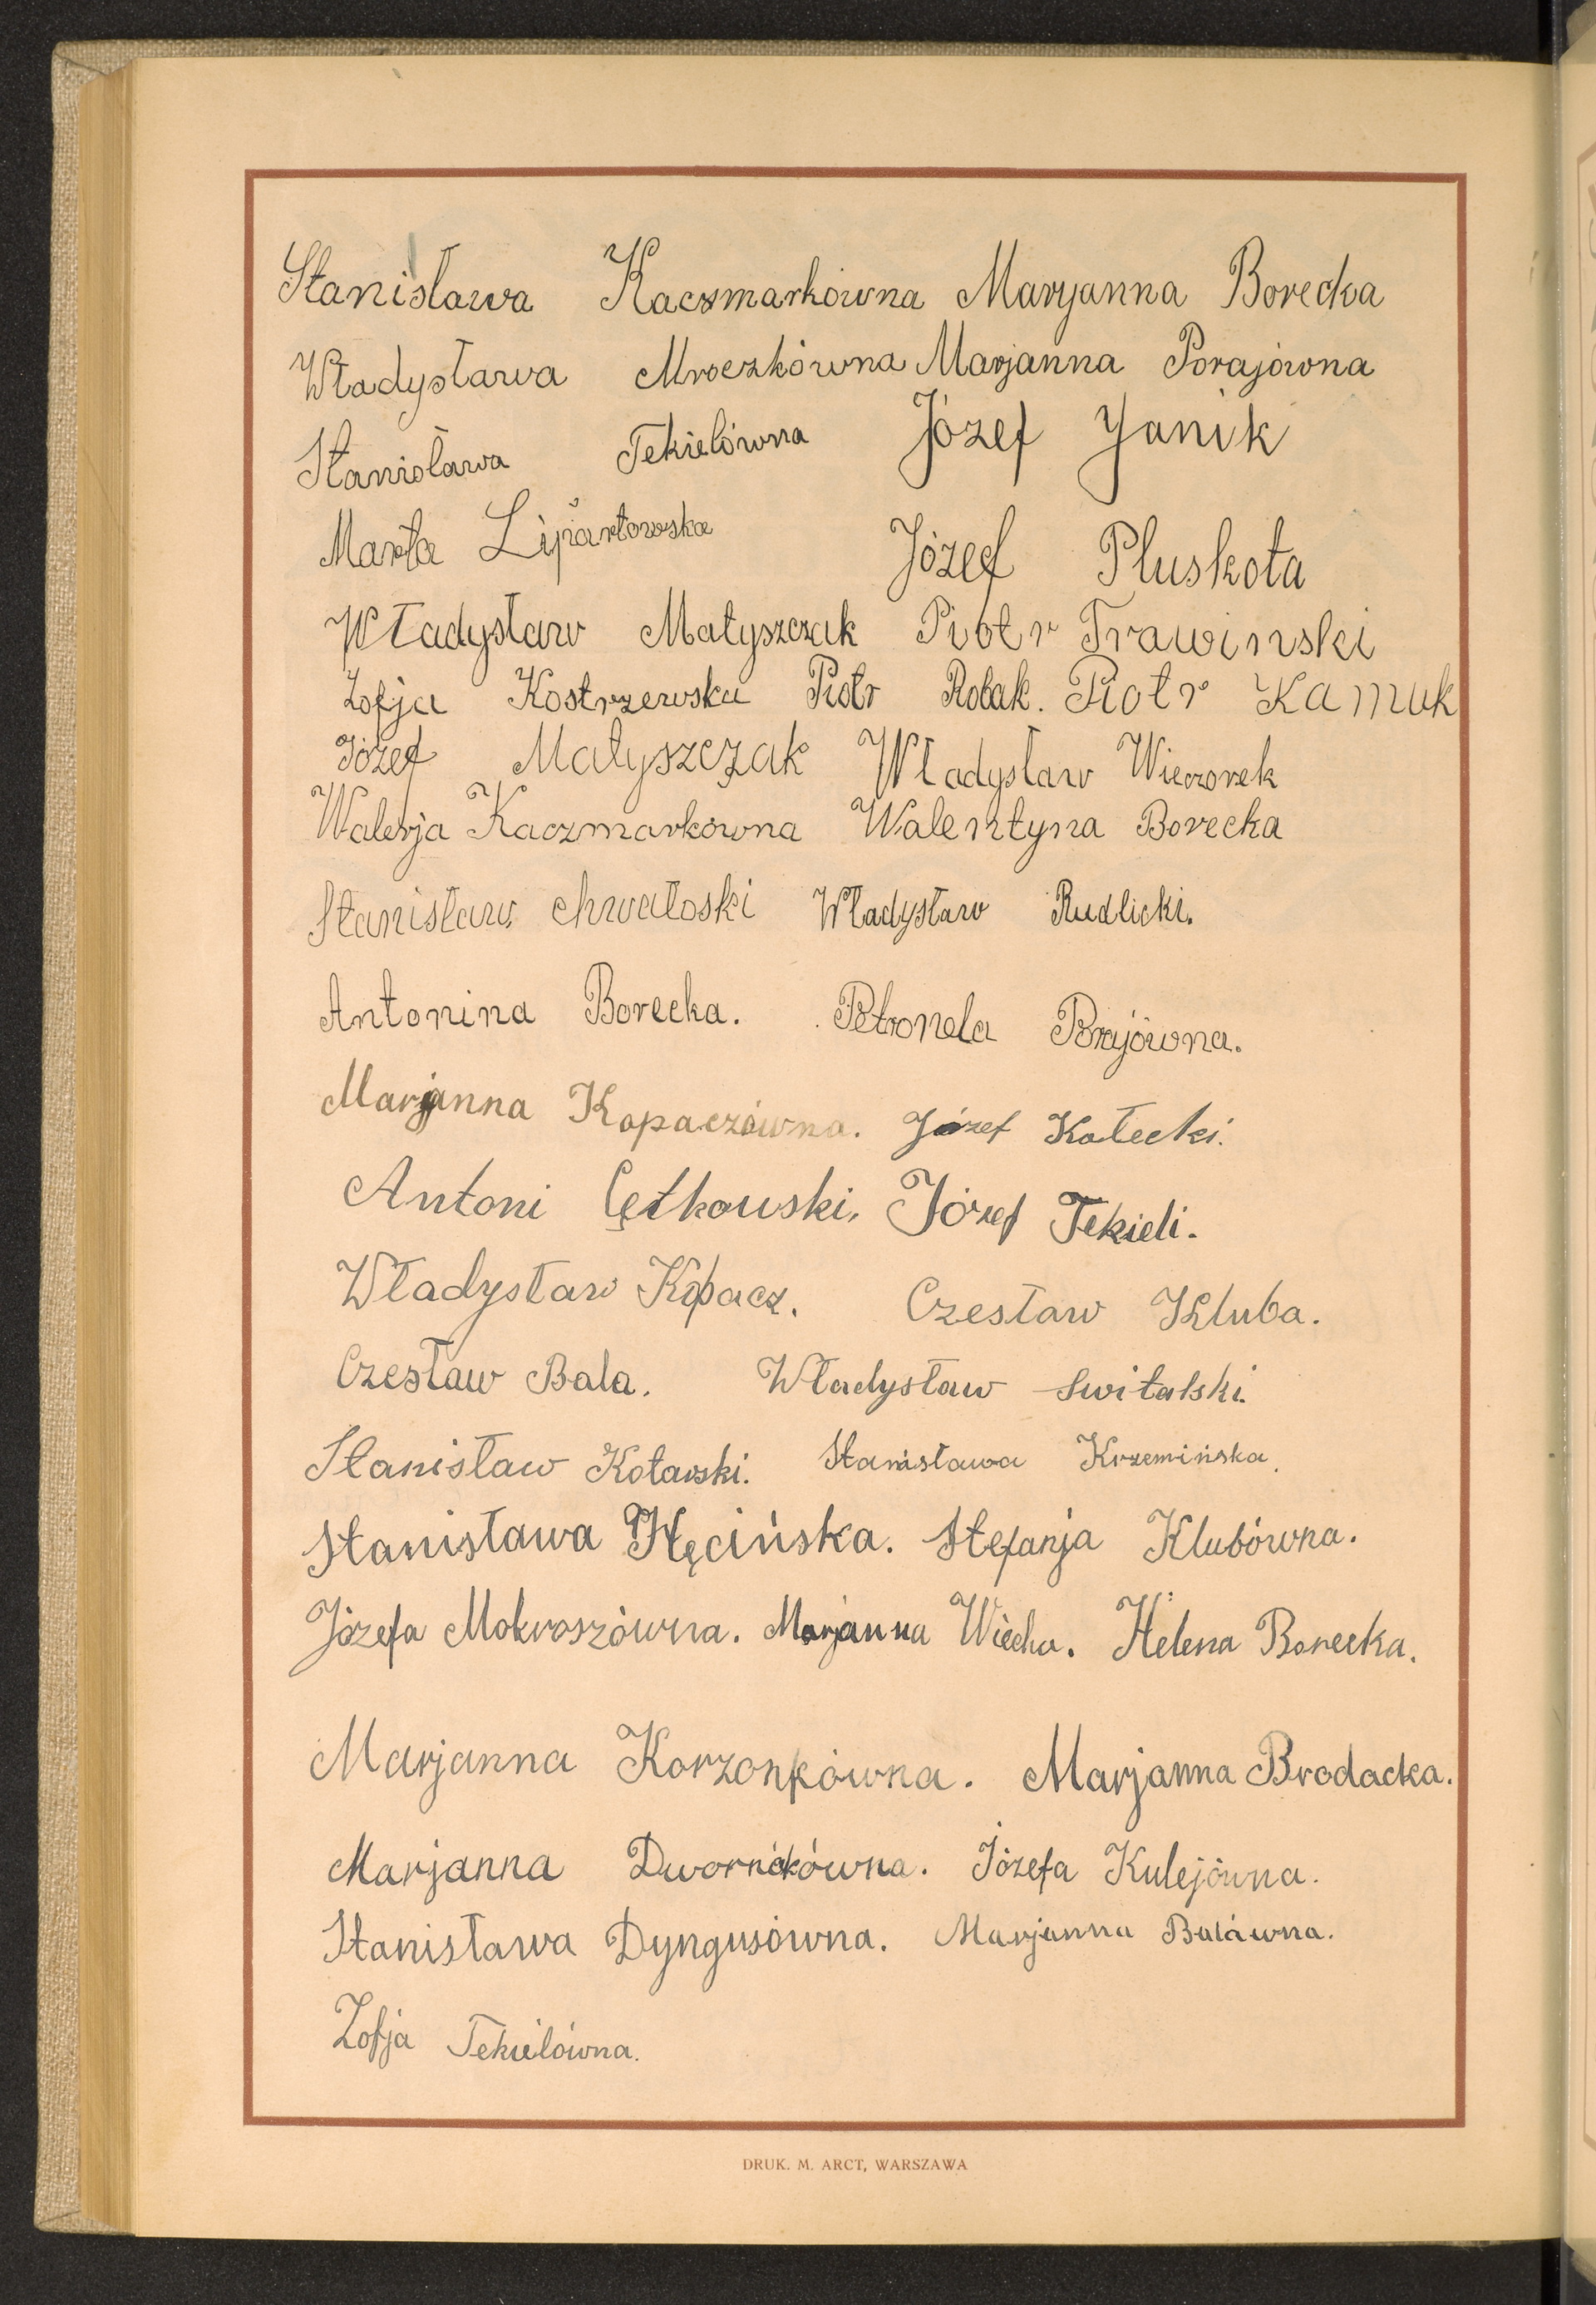 Stanisława Kaczmarkówna Maryanna Borecka
Władysława Mroczkówna Marjanna Porajówna
Stanisława Tekielówna Józef Janik
Marta Lipartowska Józef Pluskota
Władysław Matyszczak Piotr Trawinski
Zofja Kostrzewska Piotr Robak. Piotr Kamuk
Józef Matyszczak Władysław Wieczorek
Walerja Kaczmarkówna Walentyna Borecka
Stanisław chwałoski Władysław Rudlicki.
Antonina Borecka. Petronela Porajówna.
Marjanna Kopaczówna. Józef Kołecki.
Antoni Cętkowski. Józef Tekieli.
Władysław Kopacz. Czesław Kluba.
Czesław Bala. Władysław Switalski.
Stanisław Kotarski. Stanisława Krzemińska.
Stanisława Kęcińska. Stefanja Klubówna.
Józefa Mokroszówna. Marjanna Wiecha. Helena Borecka.
Marjanna Korzonkówna. Marjanna Brodacka.
Marjanna Dwornikówna. Józefa Kulejówna.
Stanisława Dyngusówna. Marjanna Balówna.
Zofja Tekielówna.
DRUK. M. ARCT, WARSZAWA